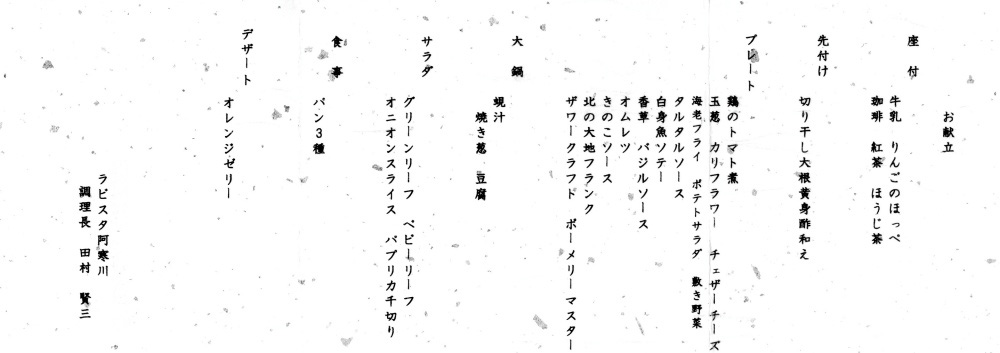 お献立
座付
牛乳 りんごのほっぺ
珈琲 紅茶 ほうじ茶
先付け
切り干し大根黄身酢和え
プレート
鶏のトマト煮
玉葱 カリフラワー チェザーチーズ
海老フライ ポテトサラダ 敷き野菜
タルタルソース
白身魚ソテー
香草 バジルソース
オムレツ
きのこソース
北の大地フランク
ザワークラフト ポーメリーマスター
大鍋
蜆汁
焼き葱 豆腐
サラダ
グリーンリーフ ベビーリーフ
オニオンスライス パプリカ千切り
食事
パン3種
デザート
オレンジゼリー
ラビスタ阿寒川
調理長 田村 賢三